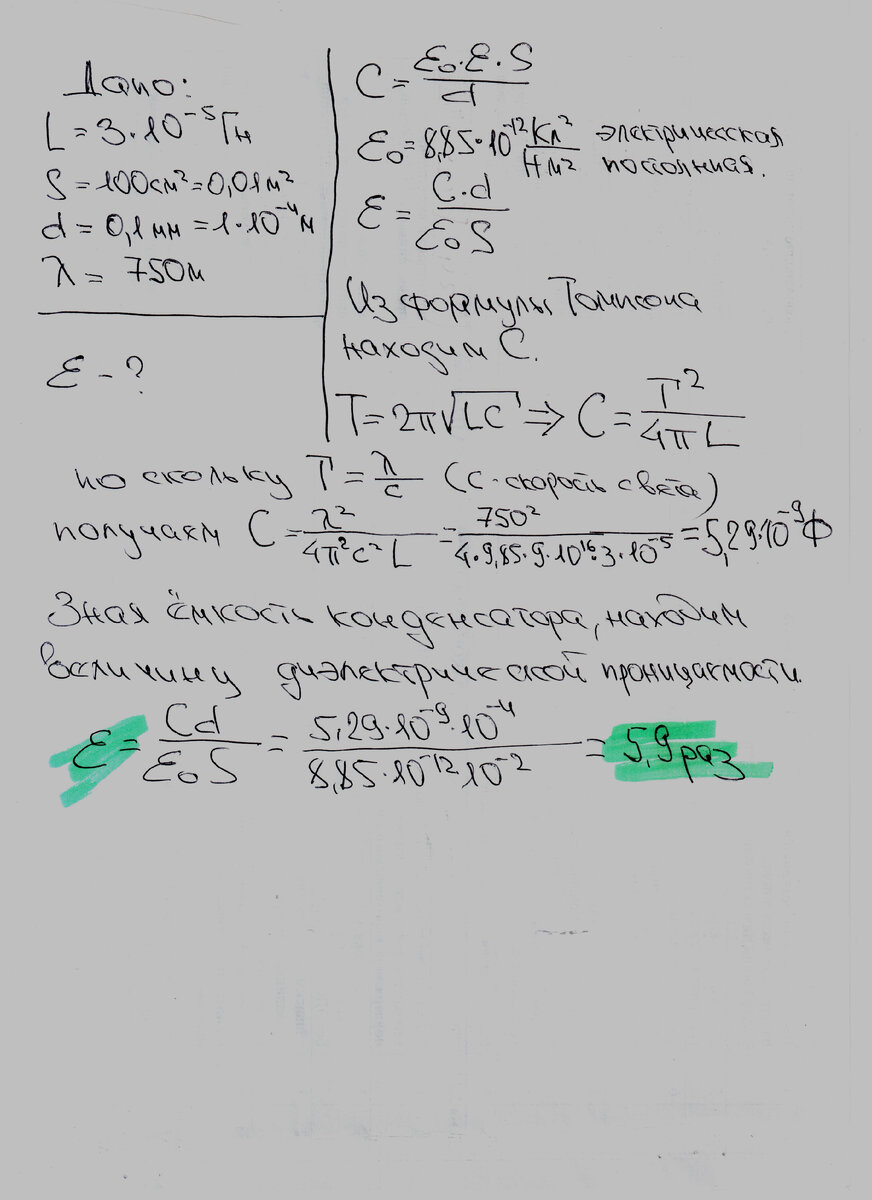 Дано:
L = 3·10⁻⁵ Гн
S = 100см² = 0,01м²
d = 0,1мм = 1·10⁻⁴м
λ = 750м
ε - ?
C = ε₀·ε·S/d
ε₀ = 8,85·10⁻¹² Кл²/Нм² электрическая
постоянная.
ε = C·d/ε₀S
Из формулы Томпсона
находим C.
T = 2π√LC ⇒ C = T²/4πL
по скольку T = λ/c (c - скорость света)
получаем C = λ²/4π²c²L = 750²/4·9,85·9·10¹⁶·3·10⁻⁵ = 5,29·10⁻⁹Ф
Зная ёмкость конденсатора, находим
величину диэлектрической проницаемости.
ε = Cd/ε₀S = 5,29·10⁻⁹·10⁻⁴/8,85·10⁻¹²10⁻² = 5,9раз